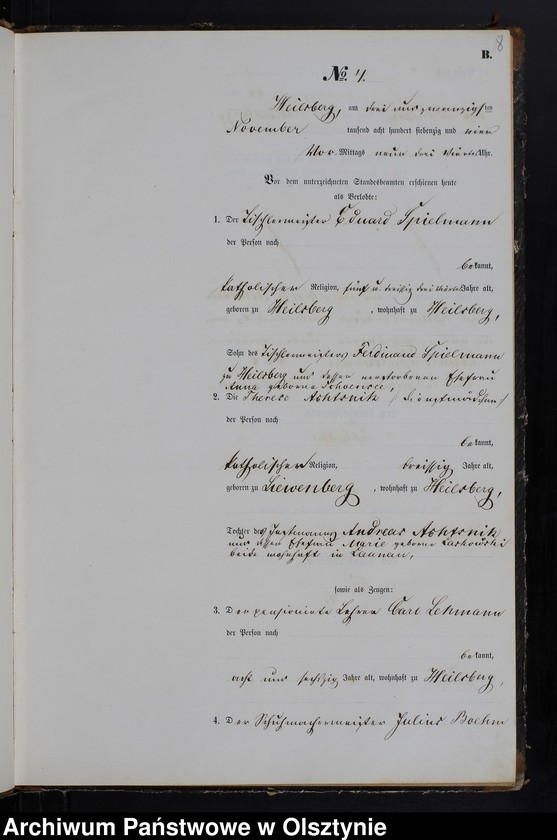 8
B.
No. 4.
Heilsberg, am drei und zwanzigsten
November tausend acht hundert siebenzig und vier
Vor Mittags neun drei viertel Uhr.
Vor dem unterzeichneten Standesbeamten erschienen heute
als Verlobte:
1. Der Tischlermeister Eduard Spielmann
der Person nach
bekannt,
katholischer Religion, fünf u. dreißig drei viertel Jahre alt,
geboren zu Heilsberg, wohnhaft zu Heilsberg,
Sohn des Tischlermeisters Ferdinand Spielmann
zu Heilsberg und dessen verstorbenen Ehefrau
Anna geborne Schoensee,
2. Die Therese Achtsnik (Dienstmädchen)
der Person nach
bekannt,
katholischer Religion, dreissig Jahre alt,
geboren zu Liewenberg, wohnhaft zu Heilsberg,
Tochter des Andreas Achtsnik
und dessen Ehefrau Marie geborne Laskowski
beide wohnhaft in Launau,
sowie als Zeugen:
3. Der pensionirte Lehrer Carl Lehmann
der Person nach
bekannt,
acht und sechszig Jahre alt, wohnhaft zu Heilsberg,
4. Der Schuhmachermeister Julius Boehm
Archiwum Państwowe w Olsztynie